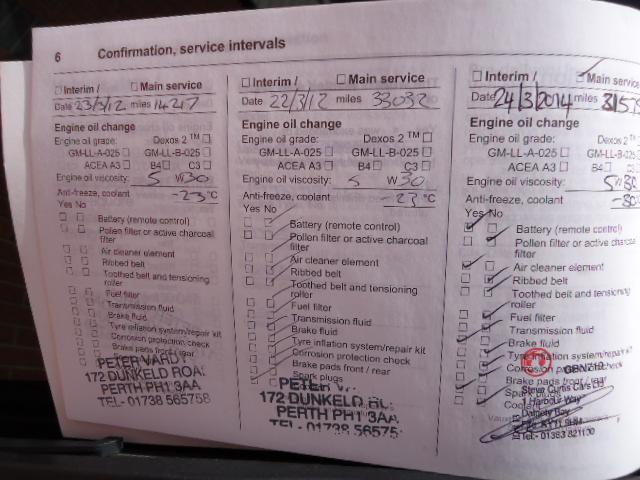 6 Confirmation, service intervals
Interim / Main service
Date 23/3/12 miles 14217
Engine oil change
Engine oil grade: Dexos 2™
GM-LL-A-025 GM-LL-B-025
ACEA A3 B4 C3
Engine oil viscosity: 5 W 30
Anti-freeze, coolant -23 °C
Yes No
Battery (remote control)
Pollen filter or active charcoal
filter
Air cleaner element
Ribbed belt
Toothed belt and tensioning
roller
Fuel filter
Transmission fluid
Brake fluid
Tyre inflation system/repair kit
Corrosion protection check
Brake pads front / rear
PETER VARDY
172 DUNKELD ROA
PERTH PH1 3AA
TEL- 01738 565758
Interim / Main service
Date 22/3/12 miles 33032
Engine oil change
Engine oil grade: Dexos 2™
GM-LL-A-025 GM-LL-B-025
ACEA A3 B4 C3
Engine oil viscosity: 5 W 30
Anti-freeze, coolant -23 °C
Yes No
Battery (remote control)
Pollen filter or active charcoal
filter
Air cleaner element
Ribbed belt
Toothed belt and tensioning
roller
Fuel filter
Transmission fluid
Brake fluid
Tyre inflation system/repair kit
Corrosion protection check
Brake pads front / rear
Spark plugs
PETER V
172 DUNKELD
PERTH PH1 3AA
TEL - 01738 56575
Interim / Main service
Date 24/3/2014 miles 3151
Engine oil change
Engine oil grade: Dexos 2
GM-LL-A-025 GM-LL-B-025
ACEA A3 B4
Engine oil viscosity: 5W30
Anti-freeze, coolant -30
Yes No
Battery (remote control)
Pollen filter or active charcoa
filter
Air cleaner element
Ribbed belt
Toothed belt and tensioning
roller
Fuel filter
Transmission fluid
Brake fluid
Tyre inflation system/repair k
Corrosion protection check
Brake pads front / rear
Spark plugs
Steve Curtis Cars
1 Harbour Way
Dalgety Bay
Tel:- 01383 821100